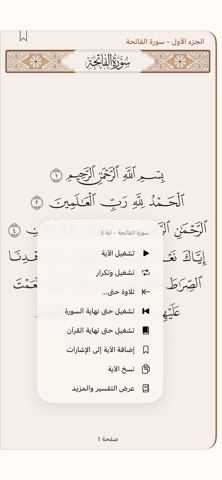 الجزء الأول - سورة الفاتحة
سُورَةُ الْفَاتِحَةِ
بِسْمِ ٱللَّهِ ٱلرَّحْمَٰنِ ٱلرَّحِيمِ ١
ٱلْحَمْدُ لِلَّهِ رَبِّ ٱلْعَٰلَمِينَ ٢
ٱلرَّحْمَٰنِ ٤
إِيَّاكَ
ٱلصِّرَٰطَ
عَلَيْهِمْ
سورة الفاتحة - آية ٤
تشغيل الآية
تشغيل وتكرار
تلاوة حتى...
تشغيل حتى نهاية السورة
تشغيل حتى نهاية القرآن
إضافة الآية إلى الإشارات
نسخ الآية
عرض التفسير والمزيد
صفحة ٦